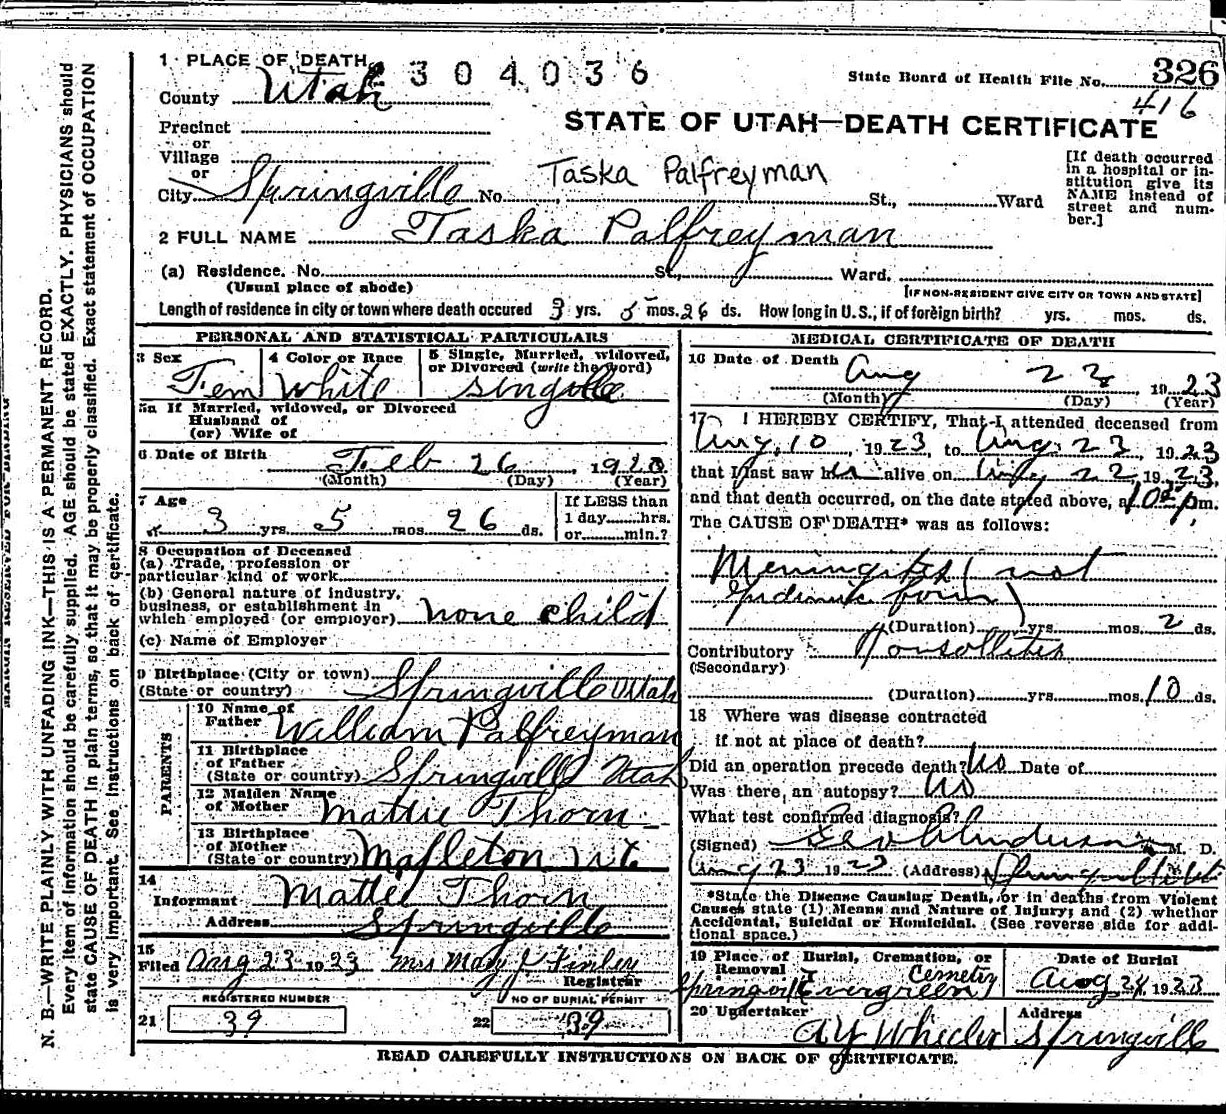 1 PLACE OF DEATH 304036
State Board of Health File No. 326
County Utah
416
STATE OF UTAH—DEATH CERTIFICATE
Precinct
or
Village
or
City Springville No. St., Ward
Taska Palfreyman
[If death occurred in a hospital or in-
stitution give its
NAME instead of
street and num-
ber.]
2 FULL NAME Taska Palfreyman
(a) Residence. No. St., Ward.
(Usual place of abode)
[IF NON-RESIDENT GIVE CITY OR TOWN AND STATE]
Length of residence in city or town where death occured 3 yrs. 5 mos. 26 ds. How long in U.S., if of foreign birth? yrs. mos. ds.
PERSONAL AND STATISTICAL PARTICULARS
3 Sex Fem
4 Color or Race White
5 Single, Married, widowed,
or Divorced (write the word)
single
5a If Married, widowed, or Divorced
Husband of
(or) Wife of
6 Date of Birth Feb 26 1920
(Month) (Day) (Year)
7 Age 3 yrs. 5 mos. 26 ds.
If LESS than
1 day hrs.
or min.?
8 Occupation of Deceased
(a) Trade, profession or
particular kind of work
(b) General nature of industry,
business, or establishment in
which employed (or employer) none child
(c) Name of Employer
9 Birthplace (City or town)
(State or country) Springville Utah
PARENTS
10 Name of
Father William Palfreyman
11 Birthplace
of Father
(State or country) Springville Utah
12 Maiden Name
of Mother Mattie Thorn
13 Birthplace
of Mother
(State or country) Mapleton Ut
14
Informant Mattie Thorn
Address Springville
15
Filed Aug 23 1923 Mrs Mary J Finley
Registrar
REGISTERED NUMBER
21 39
NO OF BURIAL PERMIT
22 39
MEDICAL CERTIFICATE OF DEATH
16 Date of Death Aug 23 1923
(Month) (Day) (Year)
17 I HEREBY CERTIFY, That I attended deceased from
Aug. 10, 1923, to Aug. 23, 1923
that I last saw her alive on Aug 22, 1923,
and that death occurred, on the date stated above, at 10 pm.
The CAUSE OF DEATH* was as follows:
Meningitis (not
Epidimic form)
(Duration) yrs. mos. 2 ds.
Contributory Tonsollitis
(Secondary)
(Duration) yrs. mos. 10 ds.
18 Where was disease contracted
if not at place of death?
Did an operation precede death? No Date of
Was there an autopsy? No
What test confirmed diagnosis?
(Signed) Geo Anderson M. D.
Aug 23 1923 (Address) Springville
*State the Disease Causing Death, or in deaths from Violent
Causes state (1) Means and Nature of Injury; and (2) whether
Accidental, Suicidal or Homicidal. (See reverse side for addi-
tional space.)
19 Place of Burial, Cremation, or
Removal Cemetery
Springville Evergreen
Date of Burial
Aug 24 1923
20 Undertaker
A Y Wheeler
Address
Springville
READ CAREFULLY INSTRUCTIONS ON BACK OF CERTIFICATE.
MARGIN RESERVED FOR BINDING
N. B.—WRITE PLAINLY WITH UNFADING INK—THIS IS A PERMANENT RECORD.
Every item of information should be carefully supplied. AGE should be stated EXACTLY. PHYSICIANS should
state CAUSE OF DEATH in plain terms, so that it may be properly classified. Exact statement of OCCUPATION
is very important. See instructions on back of certificate.